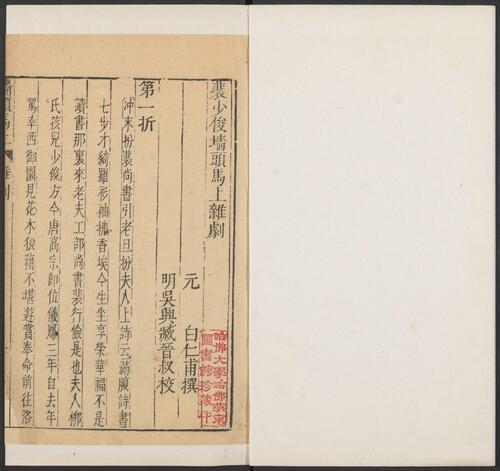 裴少俊墻頭馬上雜劇
元 白仁甫撰
明吳興臧晉叔校
哈佛大學哈佛燕京
圖書館珍藏印
第一折
冲末扮裴尚書引老旦扮夫人上詩云滿腹詩書
七步才綺羅衫袖拂香埃今生坐享榮華福不是
讀書那裏來老夫工部尚書裴行儉是也夫人柳
氏孩兒少俊方今唐高宗即位儀鳳三年自去年
駕幸西御園見花木狼藉不堪遊賞奉命前往洛
墻頭馬上 雜劇